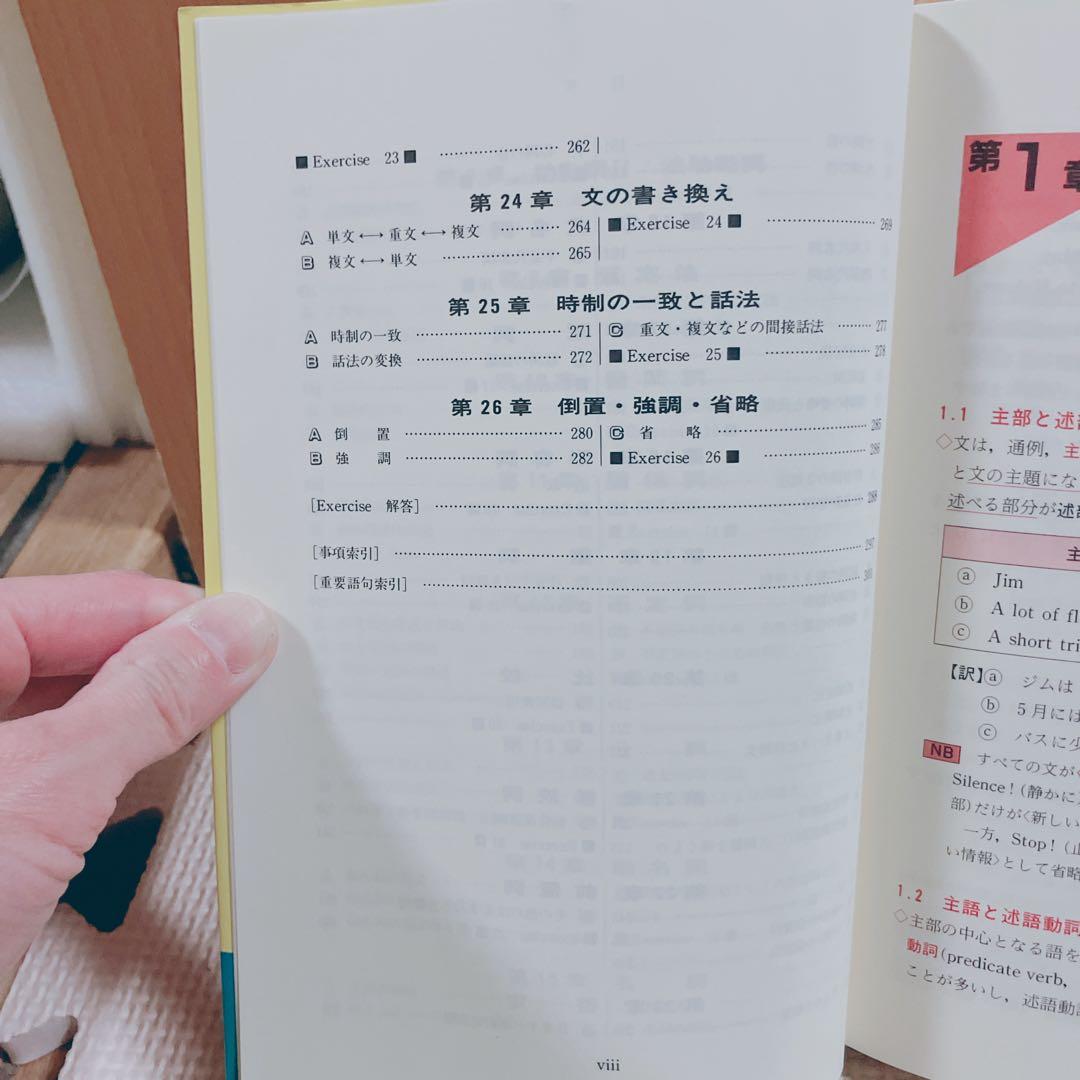 ■ Exercise 23 ■ ……………… 262
第24章 文の書き換え
A 単文⟷重文⟷複文 ………… 264
B 複文⟷単文 ……………… 265
■ Exercise 24 ■ ……………… 269
第25章 時制の一致と話法
A 時制の一致 ……………… 271
B 話法の変換 ……………… 272
C 重文・複文などの間接話法 ……… 277
■ Exercise 25 ■ ……………… 278
第26章 倒置・強調・省略
A 倒 置 ……………… 280
B 強 調 ……………… 282
C 省 略 ……………… 285
■ Exercise 26 ■ ……………… 286
[Exercise 解答] ……………… 288
[事項索引] ……………… 297
[重要語句索引] ………………
viii
第1章
1.1 主部と述
◇文は，通例，主
と文の主題にな
述べる部分が述部
主
ⓐ Jim
ⓑ A lot of fl
ⓒ A short tri
【訳】ⓐ ジムは
ⓑ 5月には
ⓒ バスに少
NB すべての文が
Silence!(静かに
部)だけが〈新しい
一方，Stop!(止
い情報〉として省略
1.2 主語と述語動詞
◇主部の中心となる語を
動詞(predicate verb,
ことが多いし，述語動